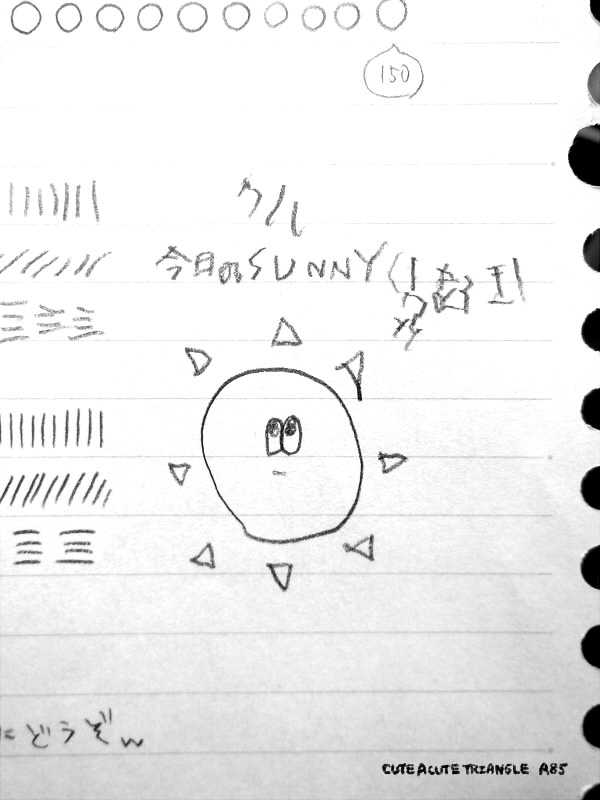 150
クル
今日のSUNNY
にどうぞw
CUTE ACUTE TRIANGLE A85